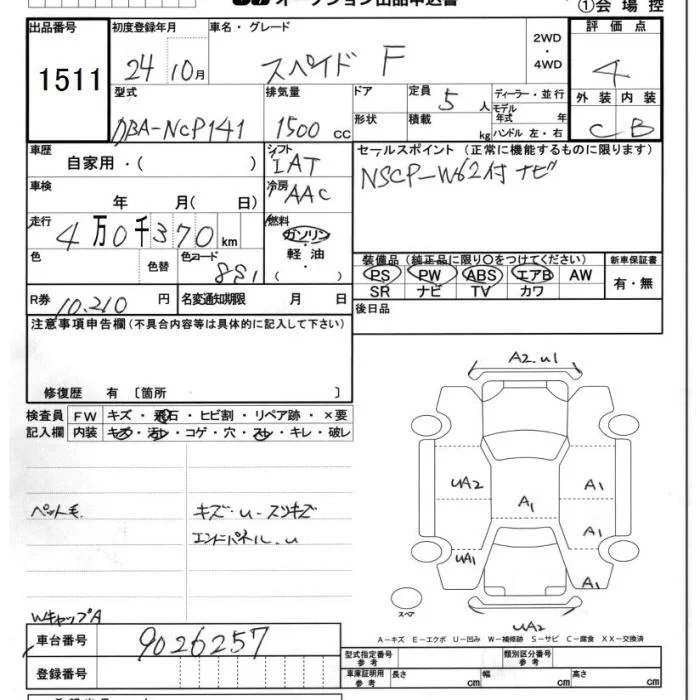 オークション出品申込書
①会場控
出品番号 1511
初度登録年月 24 10月
車名・グレード スペイド F
2WD・4WD
評価点 4
型式 DBA-NCP141
排気量 1500 cc
ドア 形状
定員 5 人
積載 kg
ディーラー・並行
モデル年式 年
ハンドル 左・右
外装 C 内装 B
車歴 自家用・( )
シフト IAT
セールスポイント (正常に機能するものに限ります)
NSCP-W62付ナビ
車検 年 月( 日)
冷房 AAC
走行 4万0千370 km
燃料 ガソリン・軽油・( )
色 色替 色コード 8S1
装備品 (純正品に限り○をつけてください)
PS PW ABS エアB AW
SR ナビ TV カワ
新車保証書 有・無
R券 10,210 円
名変通知期限 月 日
後日品
注意事項申告欄(不具合内容等は具体的に記入して下さい)
修復歴 有 〔箇所 〕
検査員記入欄
FW キズ・飛石・ヒビ割・リペア跡・×要
内装 キズ・汚レ・コゲ・穴・スレ・キレ・破レ
ペット毛
キズ・U-スリキズ
エンドパネル.U
WキャップA
A2.U1
UA2
A1
A1
A1
UA1
A1
スペア
UA2
A-キズ E-エクボ U-凹み W-補修跡 S-サビ C-腐食 XX-交換済
車台番号 9026257
登録番号
型式指定番号 参考
類別区分番号 参考
車庫証明用 参考 長さ cm 幅 cm 高さ cm